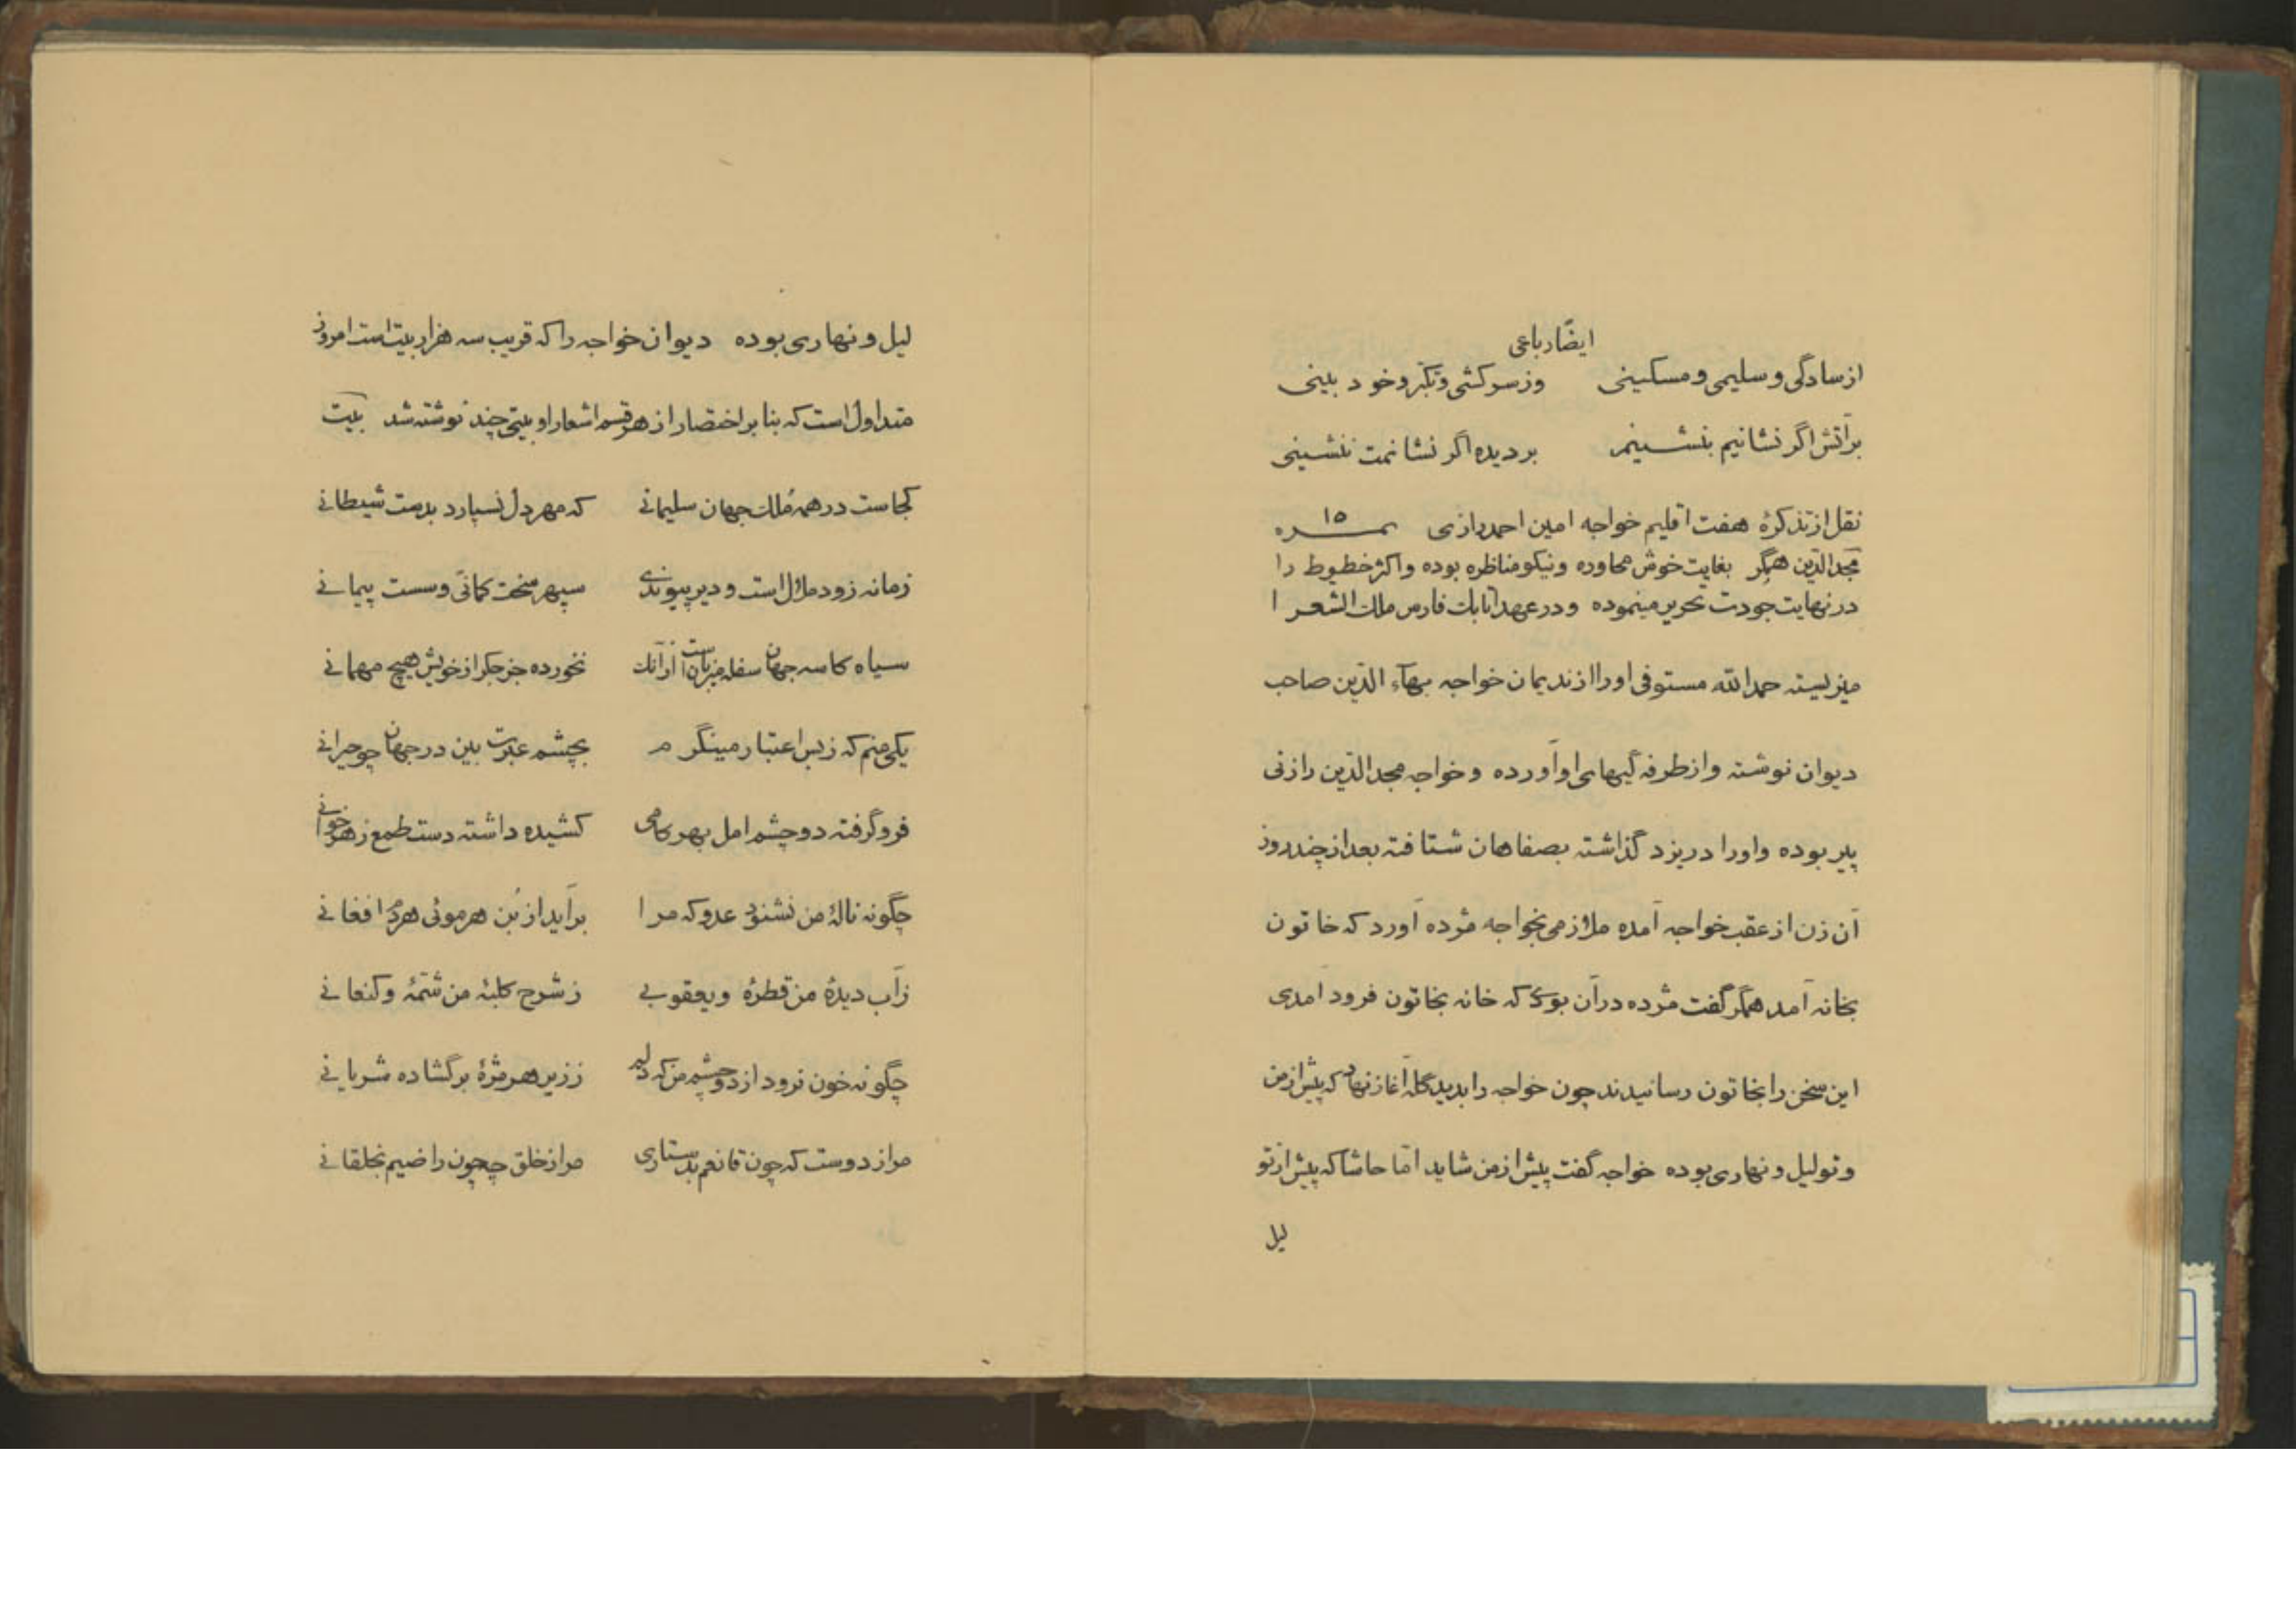 ایضًا رباعی
ازسادگی و سلیمی و مسکینی وز سرکشی و تکبر و خود بینی
بر آتش اگر نشانیم بنشینم بر دیده اگر نشانمت ننشینی
نقل از تذکرهٔ هفت اقلیم خواجه امین احمد رازی نمـــره ۱۵
مجدالدّین همگر بغایت خوش محاوره و نیکو مناظره بوده و اکثر خطوط را
در نهایت جودت تحریر مینموده و در عهد اتابک فارس ملک الشعرا
میزیسته حمدالله مستوفی او را از ندیمان خواجه بهآء الدّین صاحب
دیوان نوشته و از طرفه گیهای او آورده و خواجه مجدالدّین را زنی
پیر بوده و او را در یزد گذاشته بصفاهان شتافته بعد از چند روز
آن زن از عقب خواجه آمده ملازمی بخواجه مژده آورد که خاتون
بخانه آمد همگر گفت مژده در آن بودی که خانه بخاتون فرود آمدی
این سخن را بخاتون رسانیدند چون خواجه را بدید گله آغاز نهاد که پیش از من
و تو لیل و نهاری بوده خواجه گفت پیش از من شاید امّا حاشا که پیش از تو
لیل
لیل و نهاری بوده دیوان خواجه را که قریب سه هزار بیت است امروز
متداول است که بنا بر اختصار از هر قسم اشعار او بیتی چند نوشته شد بیت
کجاست در همه مُلک جهان سلیمانی که مهر دل نسپارد بدست شیطانی
زمانه زود ملال است و دیر پیوندی سپهر سخت کمانی و سست پیمانی
سیاه کاسه جهان سفله میزبان است از آنک نخورده جز جگر از خویش هیچ مهمانی
یکی منم که ز بس اعتبار مینگرم بچشم عبرت بین در جهان چو حیرانی
فرو گرفته دو چشم امل بهر کامی کشیده داشته دست طمع ز هر خوانی
چگونه نالهٔ من نشنود عدو که مرا برآید از بُن هر موئی هر دم افغانی
ز آب دیدهٔ من قطرهٔ و یعقوبی ز شرح کلبهٔ من شتمهٔ و کنعانی
چگونه خون نرود از دو چشم من که دلم ز زیر هر مژهٔ برگشاده شریانی
مرا ز دوست که چون قانعم بدستاری مرا ز خلق چه چون راضیم بخلقانی